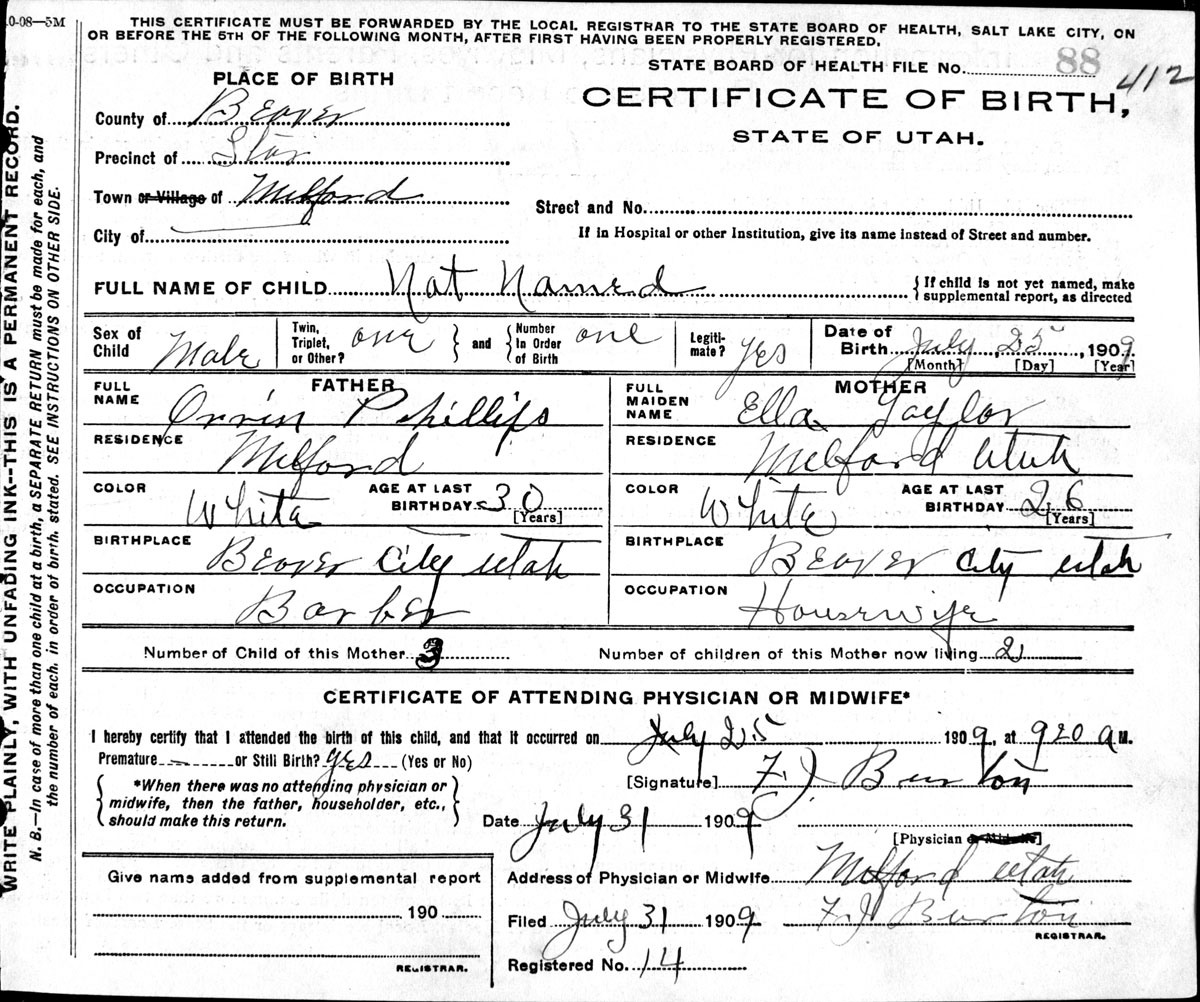 0-08—5M
THIS CERTIFICATE MUST BE FORWARDED BY THE LOCAL REGISTRAR TO THE STATE BOARD OF HEALTH, SALT LAKE CITY, ON
OR BEFORE THE 5TH OF THE FOLLOWING MONTH, AFTER FIRST HAVING BEEN PROPERLY REGISTERED.
STATE BOARD OF HEALTH FILE No. 88
412
PLACE OF BIRTH
CERTIFICATE OF BIRTH,
STATE OF UTAH.
County of Beaver
Precinct of Star
Town or Village of Milford
Street and No.
City of
If in Hospital or other Institution, give its name instead of Street and number.
FULL NAME OF CHILD Not Named
{ If child is not yet named, make
supplemental report, as directed
Sex of Child Male
Twin, Triplet, or Other? one } and { Number In Order of Birth one
Legiti-mate? yes
Date of Birth July 25, 1909
[Month] [Day] [Year]
FATHER
FULL NAME Orvin Phillips
RESIDENCE Milford
COLOR White AGE AT LAST BIRTHDAY 30 [Years]
BIRTHPLACE Beaver City Utah
OCCUPATION Barber
MOTHER
FULL MAIDEN NAME Ella Taylor
RESIDENCE Milford Utah
COLOR White AGE AT LAST BIRTHDAY 26 [Years]
BIRTHPLACE Beaver City Utah
OCCUPATION Housewife
Number of Child of this Mother 3 Number of children of this Mother now living 2
CERTIFICATE OF ATTENDING PHYSICIAN OR MIDWIFE*
I hereby certify that I attended the birth of this child, and that it occurred on July 25 1909, at 920 a M.
Premature — or Still Birth? yes (Yes or No)
[Signature] F. J. Burton
{ *When there was no attending physician or
midwife, then the father, householder, etc.,
should make this return. }
Date July 31 1909
[Physician or Midwife]
Address of Physician or Midwife Milford Utah
Filed July 31 1909 F. J. Burton
REGISTRAR.
Registered No. 14
Give name added from supplemental report
190
REGISTRAR.
WRITE PLAINLY, WITH UNFADING INK--THIS IS A PERMANENT RECORD.
N. B.—In case of more than one child at a birth, a SEPARATE RETURN must be made for each, and
the number of each, in order of birth, stated. SEE INSTRUCTIONS ON OTHER SIDE.